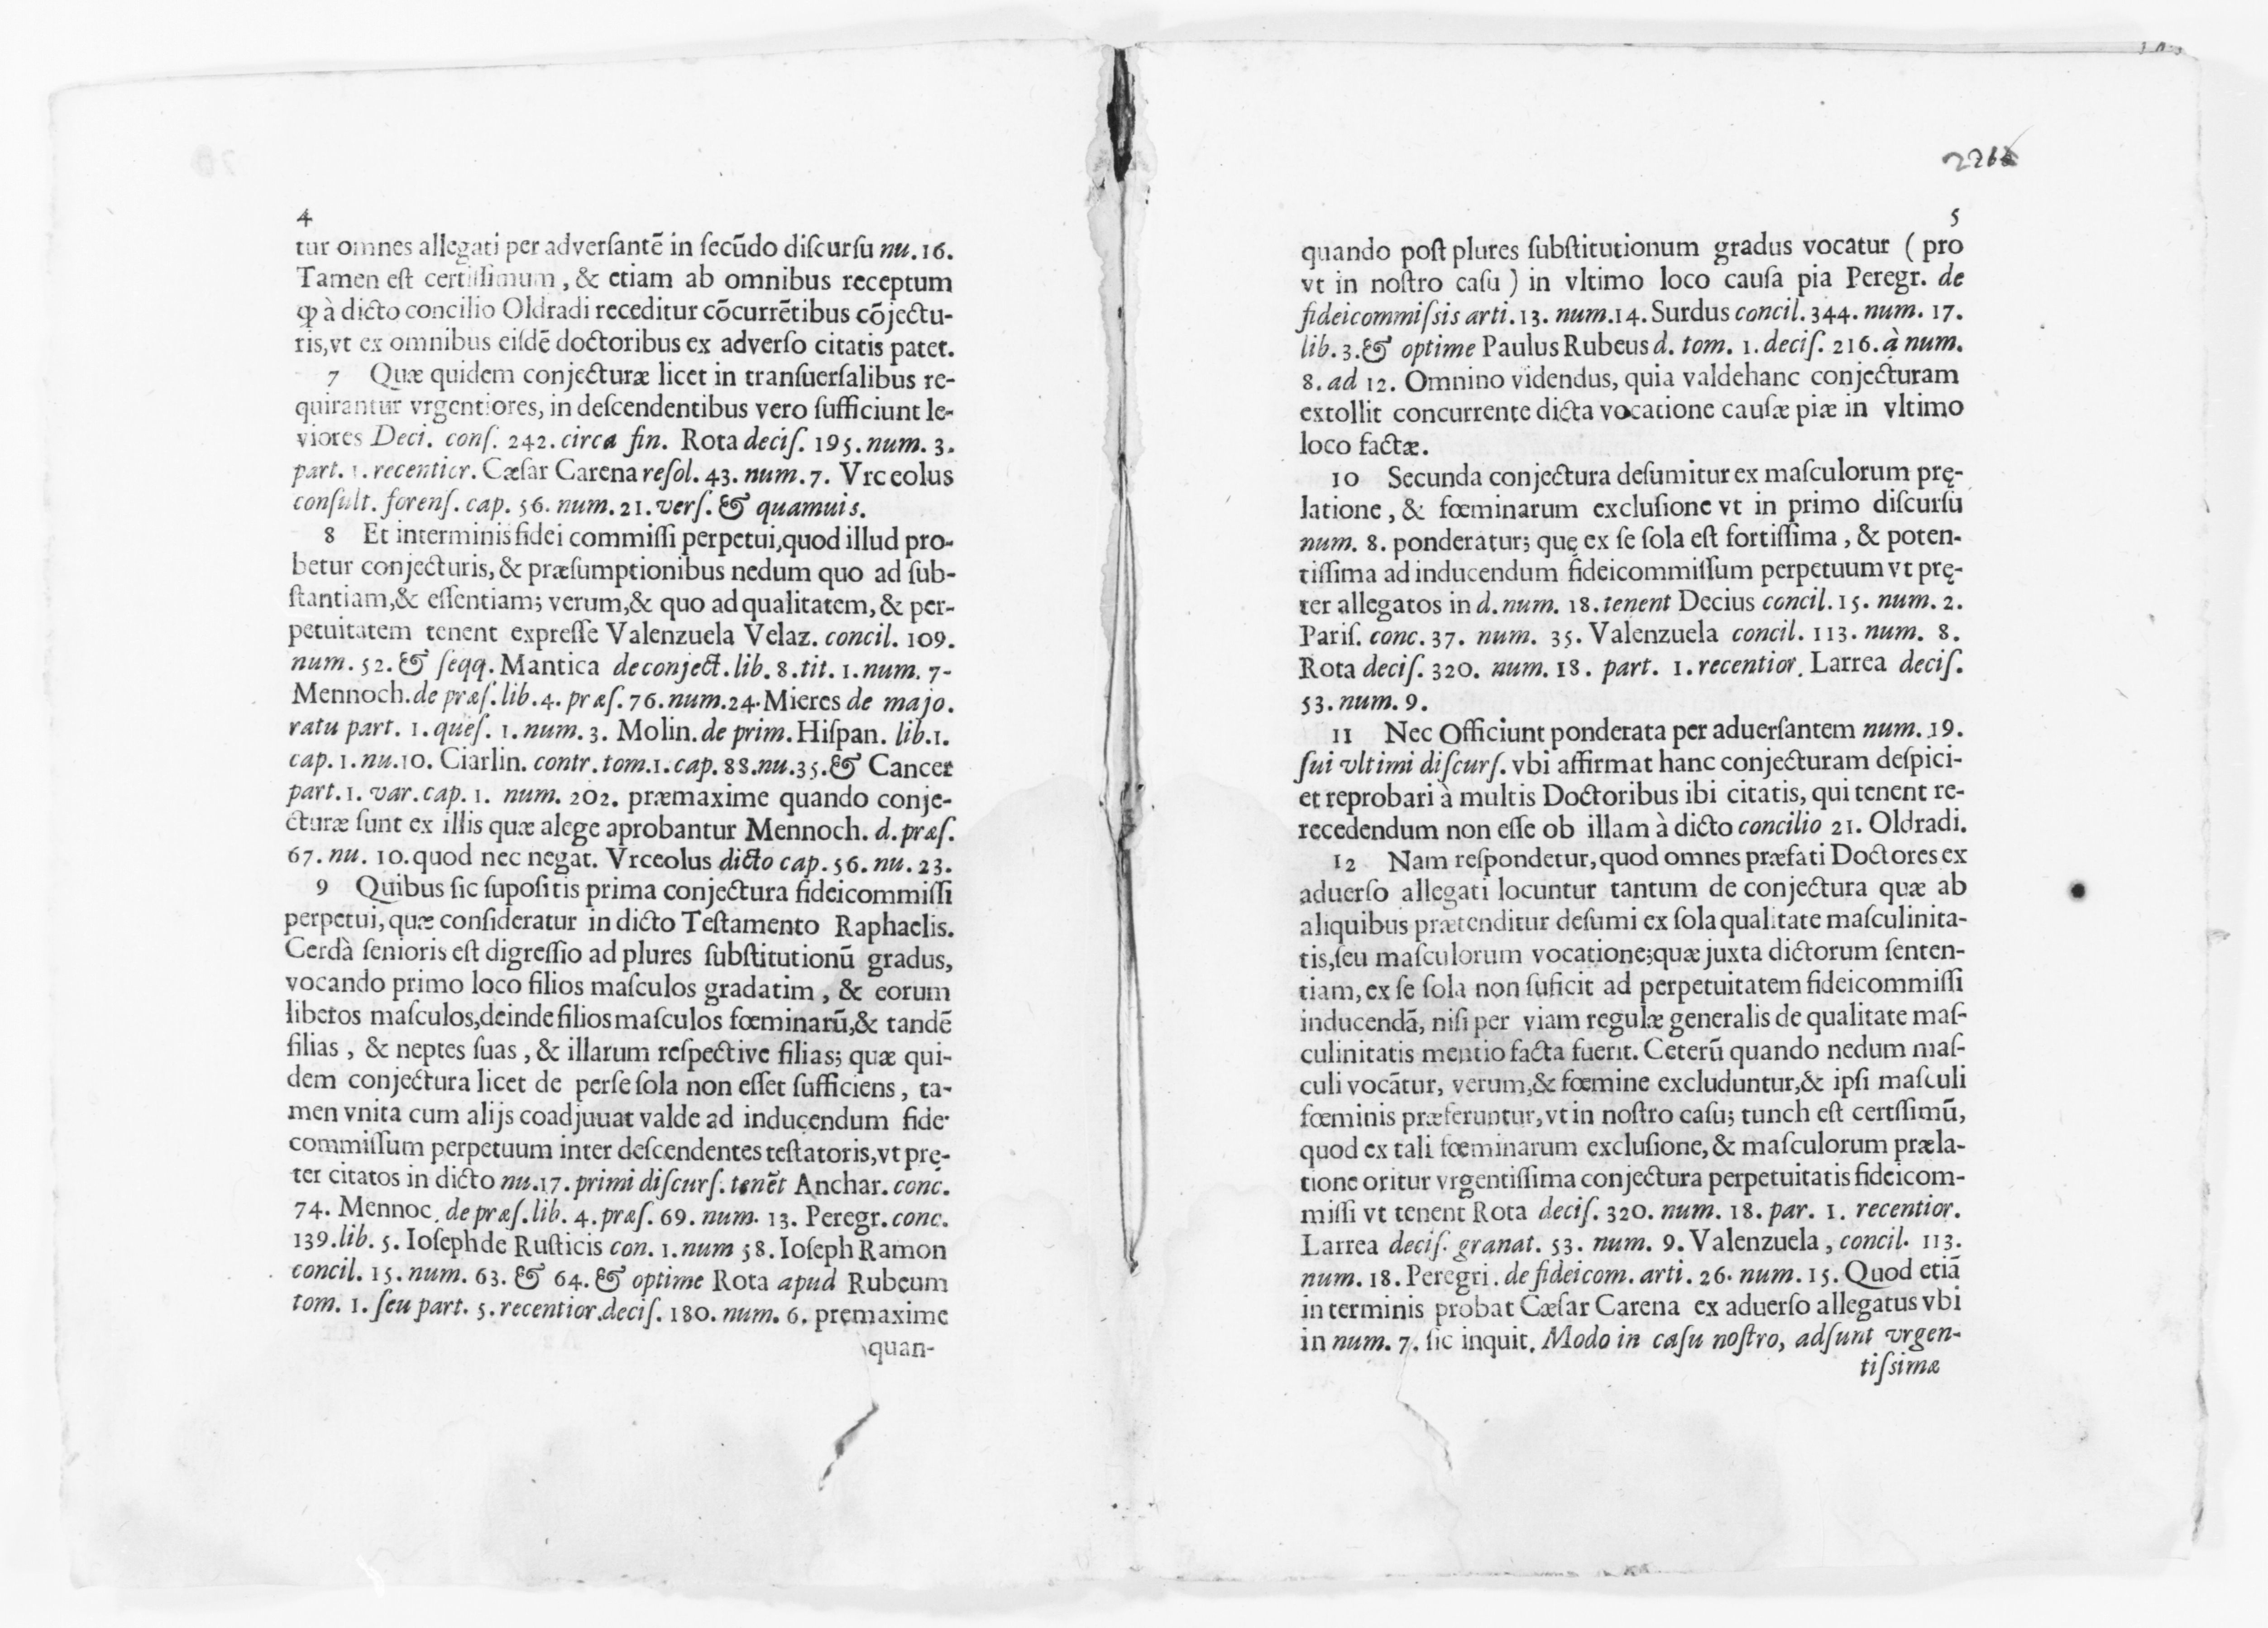 4
tur omnes allegati per adversantē in ſecūdo diſcurſu nu. 16.
Tamen eſt certiſſimum, & etiam ab omnibus receptum
ꝙ à dicto concilio Oldradi receditur cōcurrētibus cōjectu-
ris, vt ex omnibus eiſdē doctoribus ex adverſo citatis patet.
7 Quæ quidem conjecturæ licet in tranſuerſalibus re-
quirantur vrgentiores, in deſcendentibus vero ſufficiunt le-
viores Deci. conſ. 242. circa fin. Rota deciſ. 195. num. 3.
part. 1. recentior. Cæſar Carena reſol. 43. num. 7. Vrceolus
conſult. forenſ. cap. 56. num. 21. verſ. & quamuis.
8 Et interminis fidei commiſſi perpetui, quod illud pro-
betur conjecturis, & præſumptionibus nedum quo ad ſub-
ſtantiam, & eſſentiam; verum, & quo ad qualitatem, & per-
petuitatem tenent expreſſe Valenzuela Velaz. concil. 109.
num. 52. & ſeqq. Mantica de conject. lib. 8. tit. 1. num. 7-
Mennoch. de præſ. lib. 4. præſ. 76. num. 24. Mieres de majo.
ratu part. 1. queſ. 1. num. 3. Molin. de prim. Hiſpan. lib. 1.
cap. 1. nu. 10. Ciarlin. contr. tom. 1. cap. 88. nu. 35. & Cancer
part. 1. var. cap. 1. num. 202. præmaxime quando conje-
cturæ ſunt ex illis quæ alege aprobantur Mennoch. d. præſ.
67. nu. 10. quod nec negat. Vrceolus dicto cap. 56. nu. 23.
9 Quibus ſic ſupoſitis prima conjectura fideicommiſſi
perpetui, quæ conſideratur in dicto Teſtamento Raphaelis.
Cerdà ſenioris eſt digreſſio ad plures ſubſtitutionū gradus,
vocando primo loco filios maſculos gradatim, & eorum
liberos maſculos, deinde filios maſculos fœminarū, & tandē
filias, & neptes ſuas, & illarum reſpective filias; quæ qui-
dem conjectura licet de perſe ſola non eſſet ſufficiens, ta-
men vnita cum alijs coadjuuat valde ad inducendum fide-
commiſſum perpetuum inter deſcendentes teſtatoris, vt prę-
ter citatos in dicto nu. 17. primi diſcurſ. tenēt Anchar. conc.
74. Mennoc. de præſ. lib. 4. præſ. 69. num. 13. Peregr. conc.
139. lib. 5. Ioſeph de Ruſticis con. 1. num 58. Ioſeph Ramon
concil. 15. num. 63. & 64. & optime Rota apud Rubeum
tom. 1. ſeu part. 5. recentior. deciſ. 180. num. 6. pręmaxime
quan-
5
quando poſt plures ſubſtitutionum gradus vocatur (pro
vt in noſtro caſu) in vltimo loco cauſa pia Peregr. de
fideicommiſsis arti. 13. num. 14. Surdus concil. 344. num. 17.
lib. 3. & optime Paulus Rubeus d. tom. 1. deciſ. 216. à num.
8. ad 12. Omnino videndus, quia valdehanc conjecturam
extollit concurrente dicta vocatione cauſæ piæ in vltimo
loco factæ.
10 Secunda conjectura deſumitur ex maſculorum prę-
latione, & fœminarum excluſione vt in primo diſcurſu
num. 8. ponderatur; quę ex ſe ſola eſt fortiſſima, & poten-
tiſſima ad inducendum fideicommiſſum perpetuum vt prę-
ter allegatos in d. num. 18. tenent Decius concil. 15. num. 2.
Pariſ. conc. 37. num. 35. Valenzuela concil. 113. num. 8.
Rota deciſ. 320. num. 18. part. 1. recentior. Larrea deciſ.
53. num. 9.
11 Nec Officiunt ponderata per aduerſantem num. 19.
ſui vltimi diſcurſ. vbi affirmat hanc conjecturam deſpici-
et reprobari à multis Doctoribus ibi citatis, qui tenent re-
recedendum non eſſe ob illam à dicto concilio 21. Oldradi.
12 Nam reſpondetur, quod omnes præfati Doctores ex
aduerſo allegati locuntur tantum de conjectura quæ ab
aliquibus prætenditur deſumi ex ſola qualitate maſculinita-
tis, ſeu maſculorum vocatione; quæ juxta dictorum ſenten-
tiam, ex ſe ſola non ſuficit ad perpetuitatem fideicommiſſi
inducendā, niſi per viam regulæ generalis de qualitate maſ-
culinitatis mentio facta fuerit. Ceterū quando nedum maſ-
culi vocātur, verum, & fœmine excluduntur, & ipſi maſculi
fœminis præferuntur, vt in noſtro caſu; tunch eſt certſſimū,
quod ex tali fœminarum excluſione, & maſculorum præla-
tione oritur vrgentiſſima conjectura perpetuitatis fideicom-
miſſi vt tenent Rota deciſ. 320. num. 18. par. 1. recentior.
Larrea deciſ. granat. 53. num. 9. Valenzuela, concil. 113.
num. 18. Peregri. de fideicom. arti. 26. num. 15. Quod etiā
in terminis probat Cæſar Carena ex aduerſo allegatus vbi
in num. 7. ſic inquit. Modo in caſu noſtro, adſunt vrgen-
tiſsimæ